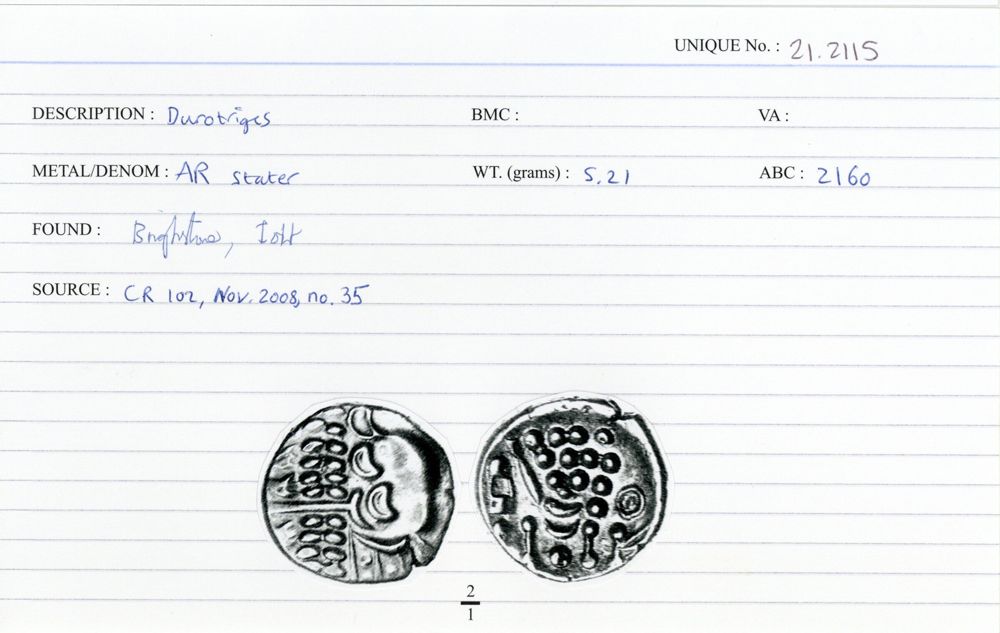 UNIQUE No. : 21.2115
DESCRIPTION : Durotriges BMC : VA :
METAL/DENOM : AR stater WT. (grams) : 5.21 ABC : 2160
FOUND : Brighstone, IoW
SOURCE : CR 102, Nov. 2008, no. 35
2
1